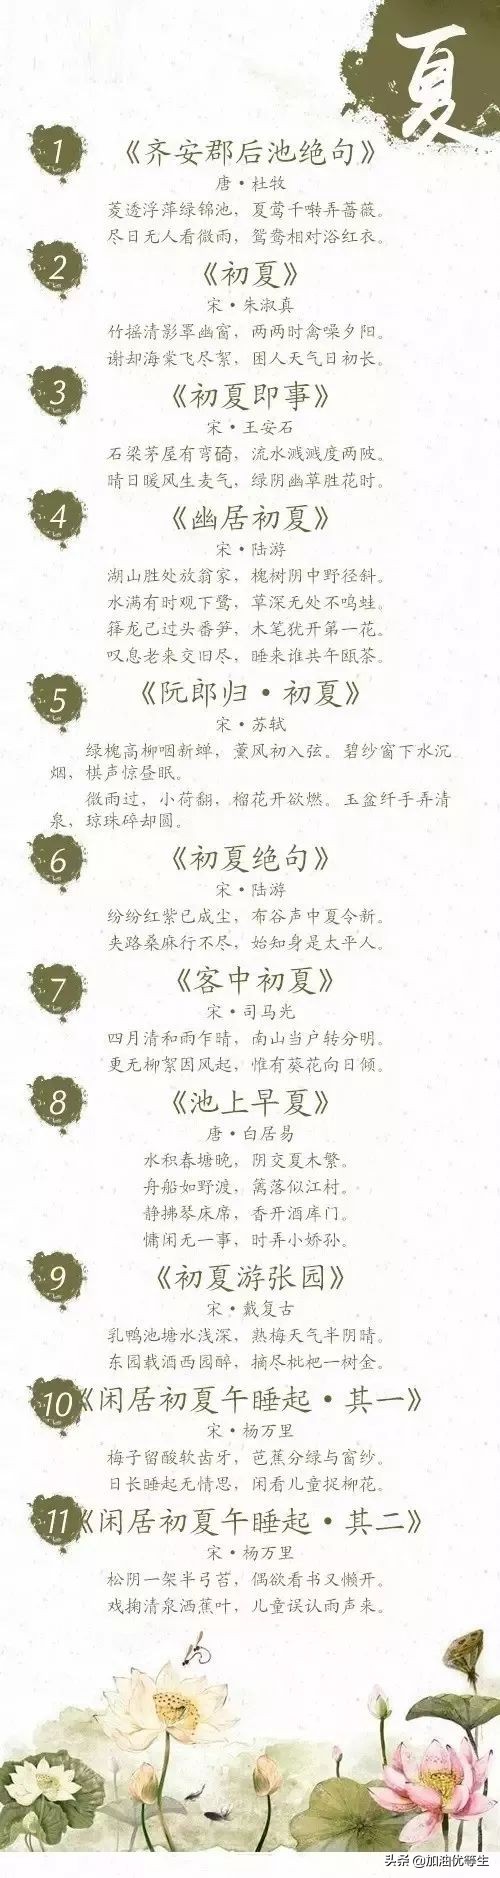 夏
1
《齐安郡后池绝句》
唐·杜牧
菱透浮萍绿锦池，夏莺千啭弄蔷薇。
尽日无人看微雨，鸳鸯相对浴红衣。
2
《初夏》
宋·朱淑真
竹摇清影罩幽窗，两两时禽噪夕阳。
谢却海棠飞尽絮，困人天气日初长。
3
《初夏即事》
宋·王安石
石梁茅屋有弯碕，流水溅溅度两陂。
晴日暖风生麦气，绿阴幽草胜花时。
4
《幽居初夏》
宋·陆游
湖山胜处放翁家，槐树阴中野径斜。
水满有时观下鹭，草深无处不鸣蛙。
箨龙已过头番笋，木笔犹开第一花。
叹息老来交旧尽，睡来谁共午瓯茶。
5
《阮郎归·初夏》
宋·苏轼
绿槐高柳咽新蝉，薰风初入弦。碧纱窗下水沉
烟，棋声惊昼眠。
微雨过，小荷翻，榴花开欲燃。玉盆纤手弄清
泉，琼珠碎却圆。
6
《初夏绝句》
宋·陆游
纷纷红紫已成尘，布谷声中夏令新。
夹路桑麻行不尽，始知身是太平人。
7
《客中初夏》
宋·司马光
四月清和雨乍晴，南山当户转分明。
更无柳絮因风起，惟有葵花向日倾。
8
《池上早夏》
唐·白居易
水积春塘晚，阴交夏木繁。
舟船如野渡，篱落似江村。
静拂琴床席，香开酒库门。
慵闲无一事，时弄小娇孙。
9
《初夏游张园》
宋·戴复古
乳鸭池塘水浅深，熟梅天气半阴晴。
东园载酒西园醉，摘尽枇杷一树金。
10《闲居初夏午睡起·其一》
宋·杨万里
梅子留酸软齿牙，芭蕉分绿与窗纱。
日长睡起无情思，闲看儿童捉柳花。
11《闲居初夏午睡起·其二》
宋·杨万里
松阴一架半弓苔，偶欲看书又懒开。
戏掬清泉洒蕉叶，儿童误认雨声来。
头条@加油优等生